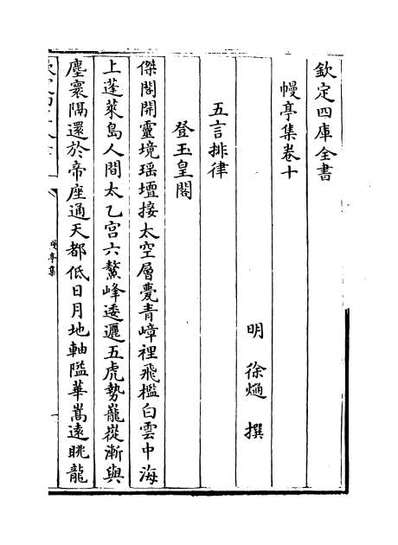 欽定四庫全書
幔亭集卷十
明 徐熥 撰
五言排律
登玉皇閣
傑閣開靈境瑶壇接太空層甍青嶂裡飛檻白雲中海
上蓬萊島人間太乙宫六鰲峰逶邐五虎勢巃嵸漸與
塵寰隔還於帝座通天都低日月地軸隘華嵩遠眺龍
幔亭集